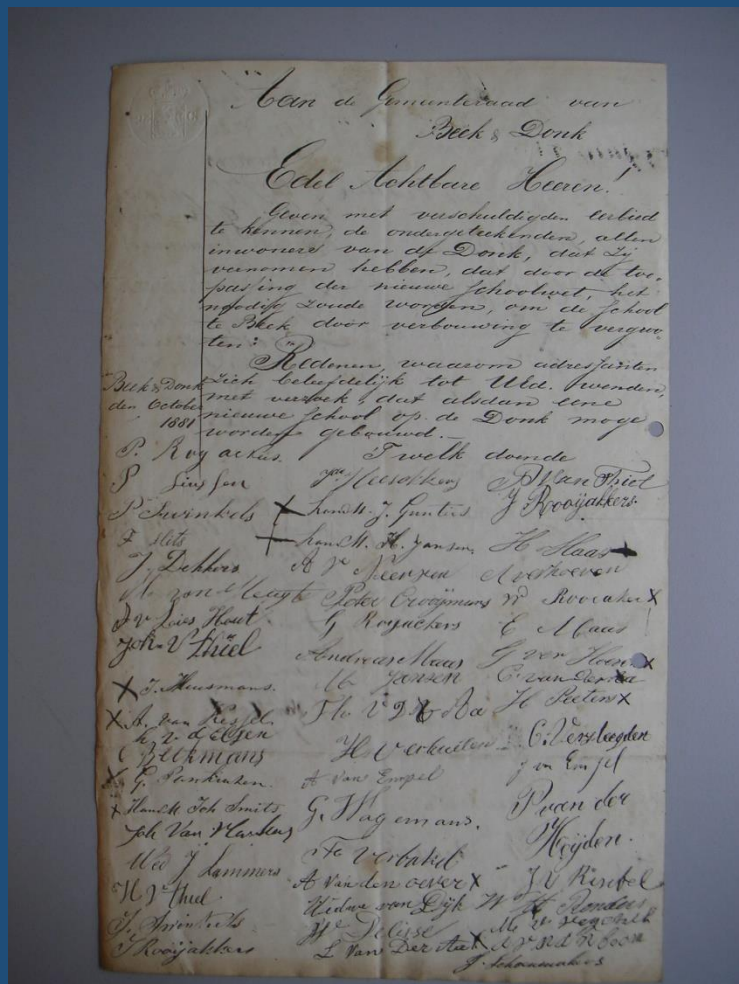 Aan de Gemeenteraad van
Beek & Donk
Edel Achtbare Heeren!
Geven met verschuldigden eerbied
te kennen, de ondergeteekenden, allen
inwoners van de Donk, dat zij
vernomen hebben, dat door de toe-
passing der nieuwe schoolwet, het
noodig zoude worden, om de school
te Beek door verbouwing te vergroo-
ten:
Redenen, waarom adressanten
zich beleefdelijk tot UEd. wenden,
met verzoek, dat alsdan eene
nieuwe school op de Donk moge
worden gebouwd.
Beek & Donk
den October
1881
T welk doende
P.
P Swinkels
J. Dekkers
Joh. V Thiel
X J. Muusmans.
X A. van Kessel
h. v. d Elsen
C Beekmans
X G.
X Handm Joh Smits
Joh Van
Wed J Lammers
H V Thiel
J. Swinkels
J Rooijakkers
X handm. J. Gunters
X handm. H. Jansen
A V
Peter Crooijmans
G Royackers
Andreas Maas
M Jansen
H Verkuilen
A van Empel
G. Wagemans.
Verbakel
A Van den oever X
Weduwe van Dijk
L Van Der Aa X
P. Van Thiel
J Rooijakkers
H Maas
A verhoeven
E Maas
G ver Hoeven X
C. van der Aa
H Peeters X
C. Versteegden
J vn Empel
P van der
Heijden.
H Konders
J. Schoenmakers